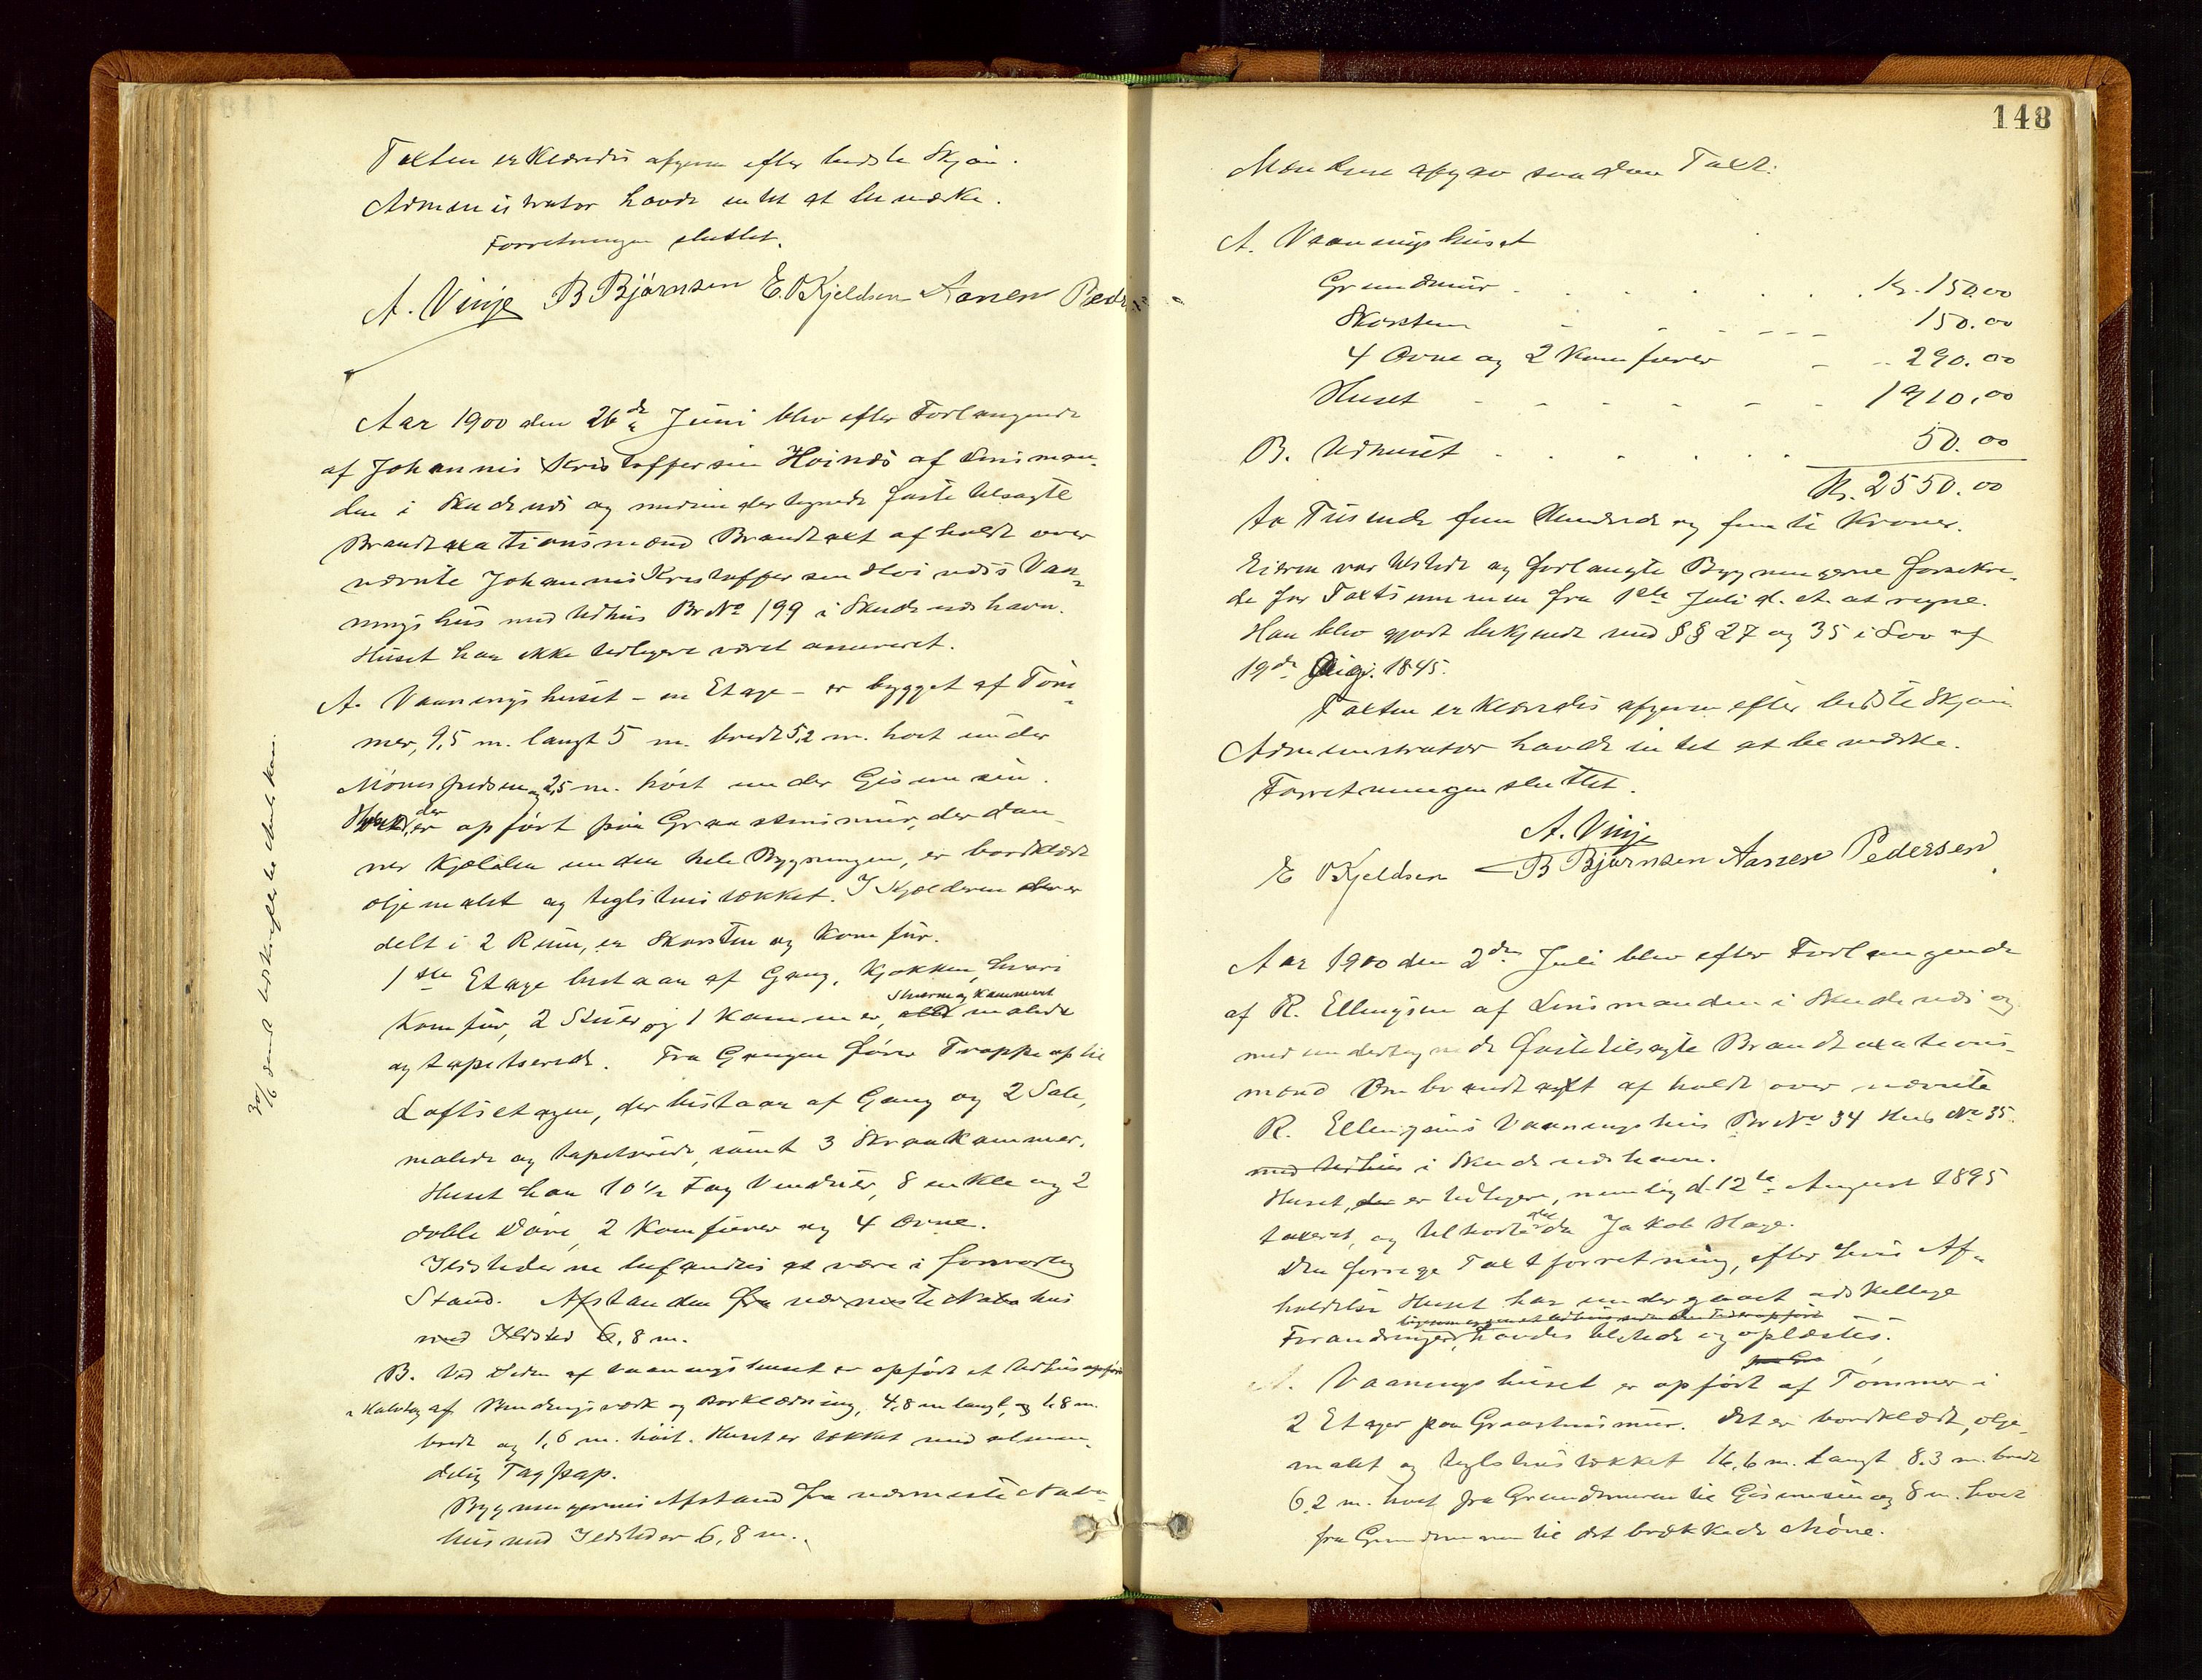 Taxten erklæredes afgiven efter bedste Skjøn.
Administrator havde intet at bemærke.
Forretningen sluttet.
A. Vinje B Bjørnsen E. Kjeldsen Aanen Peders
Aar 1900 den 26de Juni blev efter Forlangende
af Johannes Kristoffersen Hoinæs af Lensman-
den i Skudenes og medundertegnede faste tilsagte
Brandtaxationsmænd Brandtaxt afholdt over
nævnte Johannes Kristoffersen Hoinæs's Vaa-
ningshus med Udhus Br No 199 i Skudeneshavn.
Huset har ikke tidligere været assureret.
A. Vaaningshuset - en Etage - er bygget af Töm-
mer, 9,5 m. langt 5 m. bredt 5,2 m. höit under
Mönes Aasen og 2,5 m. höit under Gesimsen.
Huset, der er opfört paa Graastensmur, der dan-
ner Kjelder under hele Bygningen, er bordklædt
oljemalet og teglstenstækket. I Kjælderen der er
delt i 2 Rum, er Skorsten og Komfur.
1ste Etage bestaar af Gang, Kjøkken, hvori
Stuerne og Kammeret
Komfur, 2 Stuer og 1 Kammer, alle malede
og tapetserede. Fra Gangen förer Trappe op til
Loftsetagen, der bestaar af Gang og 2 Sale,
malede og tapetserede, samt 3 Skraakammer.
Huset har 10½ Fag Vinduer, 8 enkle og 2
doble Döre, 2 Komfurer og 4 Ovne.
Ildstederne befandtes at være i forsvarlig
Stand. Afstanden fra nærmeste Nabohus
med Ildsted 6,8 m.
B. Ved Siden af Vaaningshuset er opfört et Udhus opfört
i Halvtag af Bindingsværk og Bordklædning, 4,8 m langt, og 1,8 m.
bredt og 1,6 m. höit. Huset er tækket med almin-
delig Tagpap.
Bygningernes Afstand fra nærmeste Nabo-
hus med Ildsteder 6,8 m.
30/6 sendt
148
Mændene afgav saadan Taxt:
A. Vaaningshuset
Grundmur . . . . . . . Kr. 150.00
Skorsten - - - - - - 150.00
4 Ovne og 2 Komfurer - - 290.00
Huset - - - - - - - 1910.00
B. Udhuset . . . . . . 50.00
Kr. 2550.00
To Tusende fem Hundrede og femti Kroner.
Eieren var tilstede og forlangte Bygningerne forsikre-
de for Taxtsummen fra 1ste Juli d. A. at regne.
Han blev gjort bekjendt med §§ 27 og 35 i Lov af
19de Aug. 1845.
Taxten erklæredes afgiven efter bedste Skjøn
Administrator havde intet at bemærke.
Forretningen sluttet.
A. Vinje
E Kjeldsen B Bjørnsen Aanen Pedersen
Aar 1900 den 2den Juli blev efter Forlangende
af R. Ellingsen af Lensmanden i Skudenes og
medundertegnede faste tilsagte Brandtaxations-
mænd Ombrandtaxt afholdt over nævnte
R. Ellingsens Vaaningshus Br No 34 Hus No 35.
med Udhus i Skudeneshavn.
Huset, der er tidligere, nemlig d. 12te August 1895
taxeret, og tilhörte da Jakob Hage.
Den forrige Taxtforretning, efter hvis Af-
holdelse Huset har undergaaet adskillige
Forandringer, havdes tilstede og oplæstes.
A. Vaaningshuset er opfört af Tömmer i
2 Etager paa Graastensmur. Det er bordklædt, olje-
malet og teglstenstækket 16,6 m. langt 8,3 m. bredt
6,2 m. höit fra Grundmuren til Gesimsen og 8 m. höit
fra Grundmuren til det brækkede Möne.